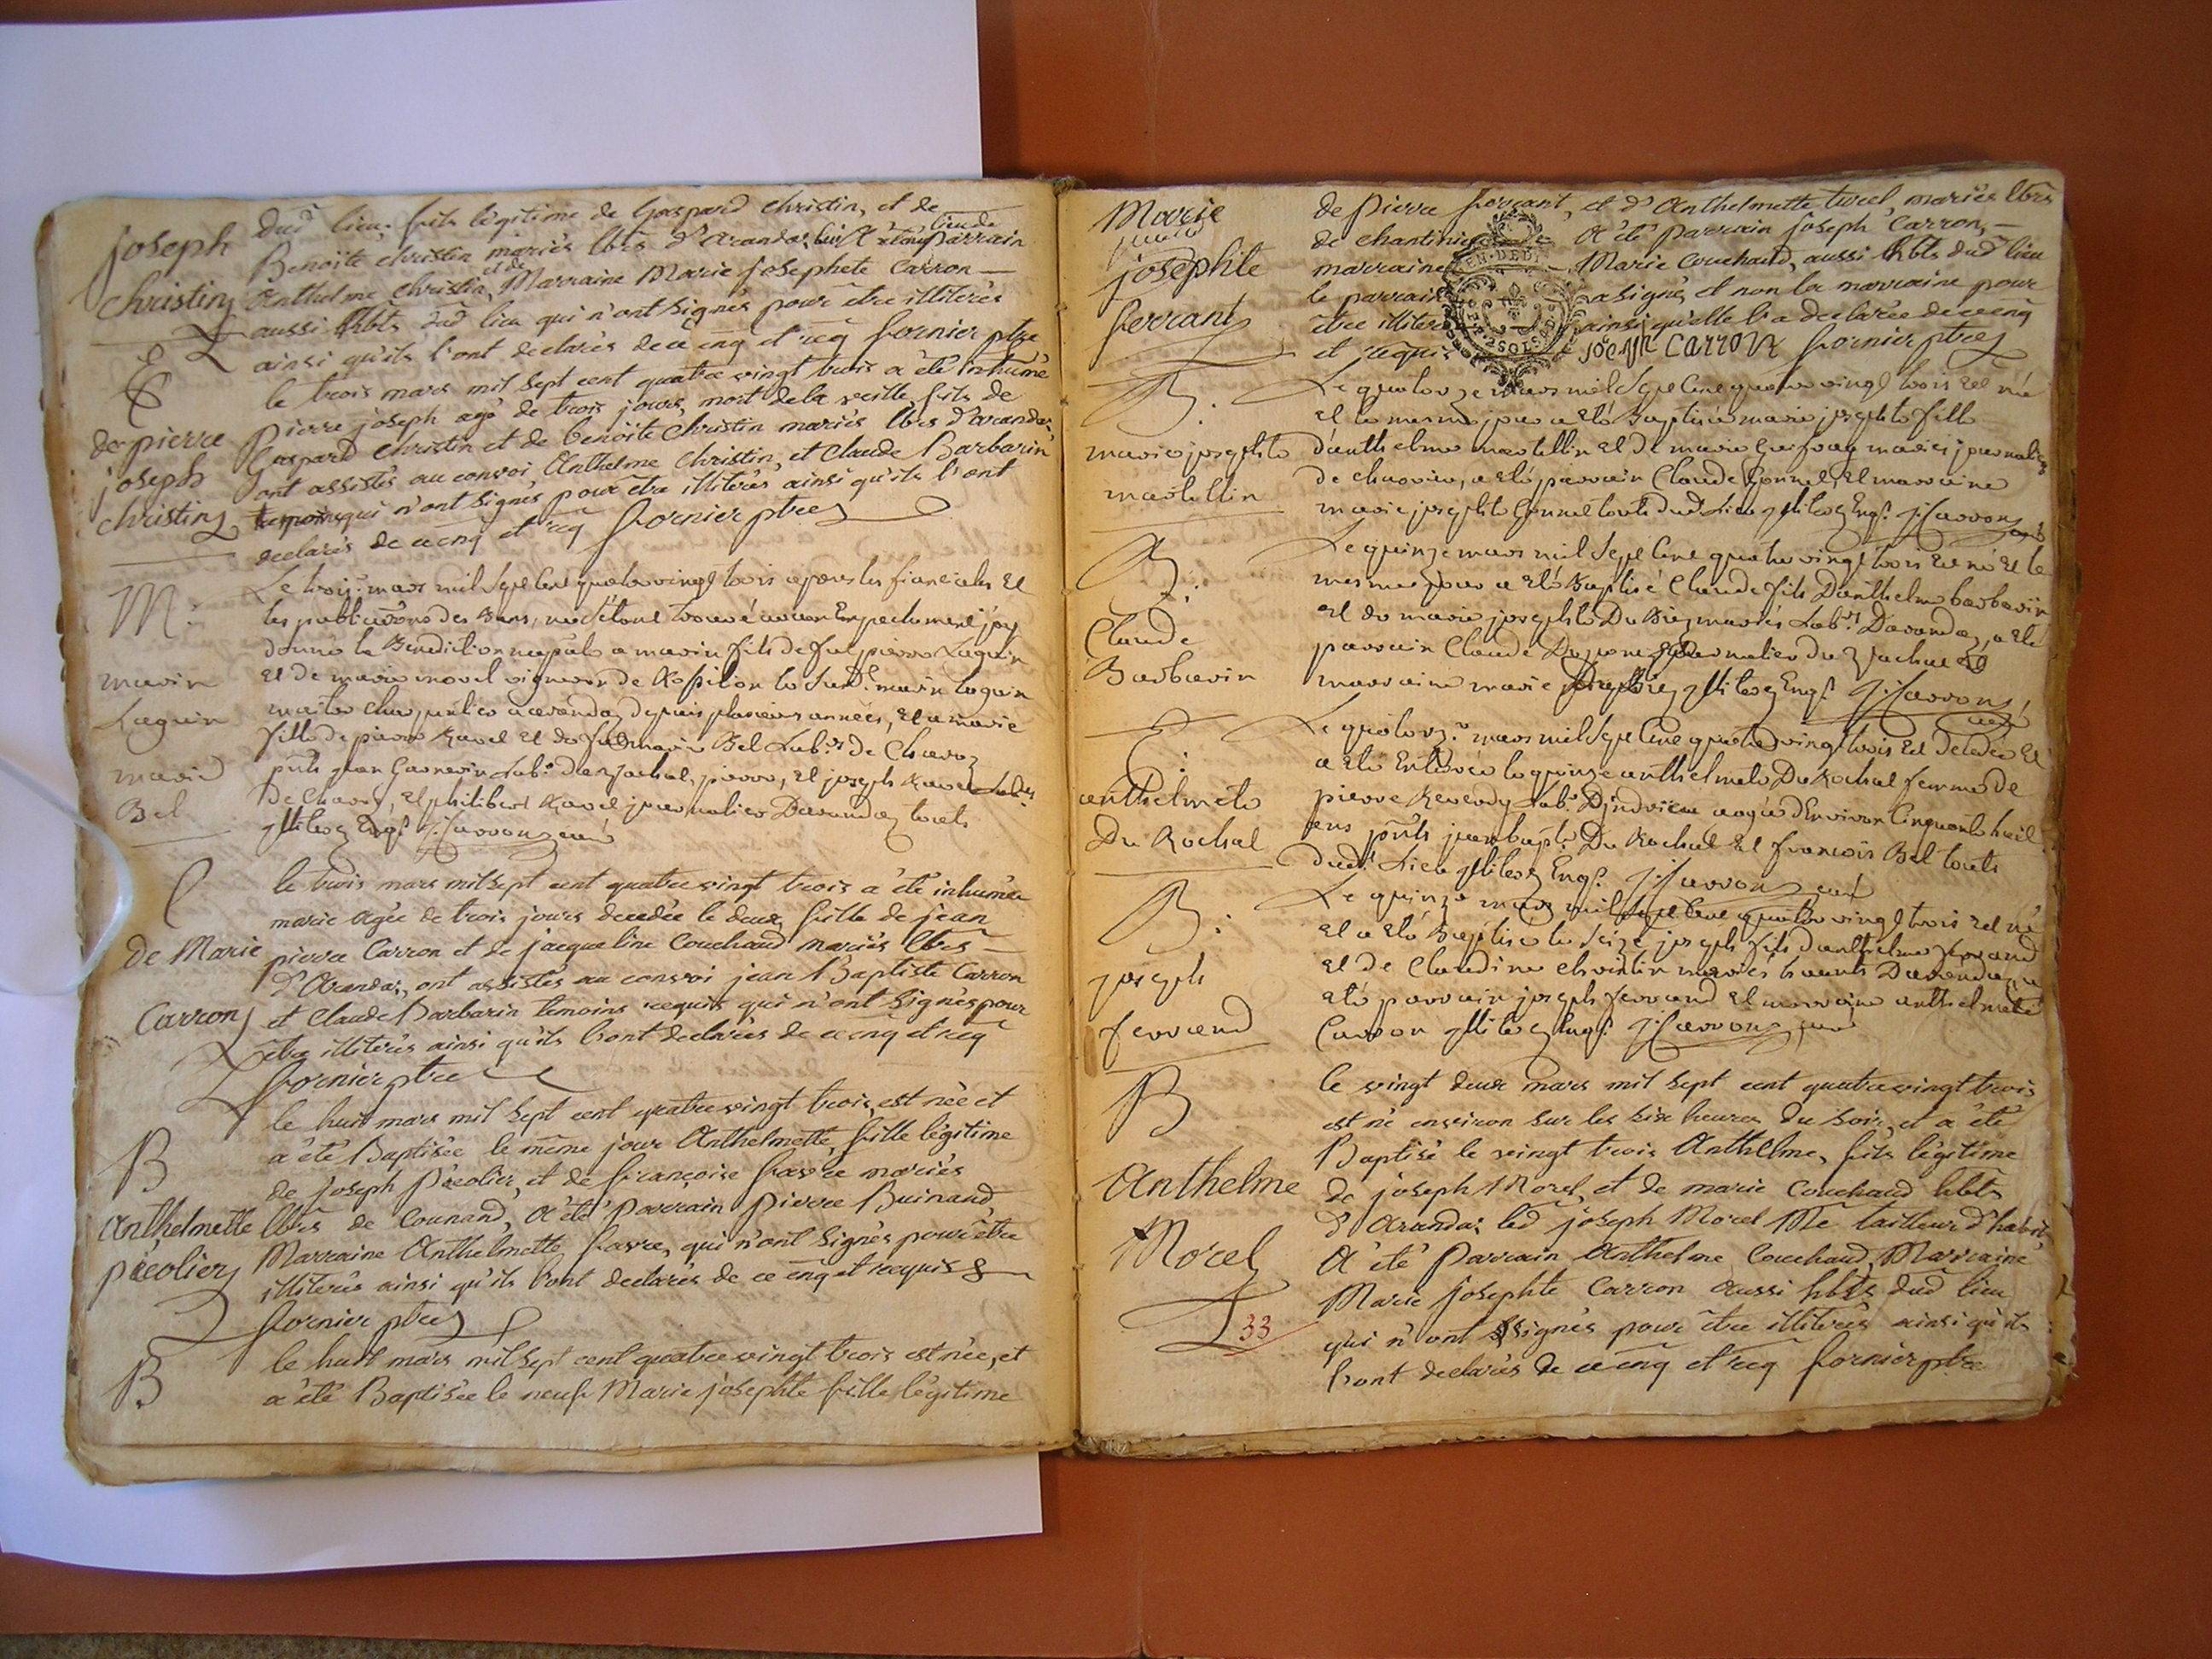 Joseph
Christin
dud lieu. fils légitime de Gaspard christin, et de
Benoîte christin mariés lbrs d'arandas, A été Parrain
Anthelme christin, et de Marraine Marie josephete Carron
aussi hbts dud lieu qui n'ont signés pour être illiterés
ainsi qu'ils l'ont declarés de ce enq et req fornier ptre
E
de pierre
joseph
christin
le trois mars mil sept cent quatre vingt trois a été inhumé
Pierre joseph agé de trois jours, mort de la veille, fils de
Gaspard Christin et de benoîte Christin mariés lbrs d'arandas,
ont assistés au convoi, Anthelme Christin, et Claude Barbarin
temoins qui n'ont signés pour être illiterés ainsi qu'ils l'ont
declarés de ce enq et req fornier ptre
M:
marin
Laguin
marie
Bel
Le trois mars mil sept cent quatre vingt trois apres les fiancailles et
les publications des Bans, ne s'étant trouvé aucun Empechement j'ay
donné la Benediction nuptiale a marin fils de feu pierre Laguin
et de marie morel vigneron de Rossilion le susd. marin laguin
maitre charpentier a arandas depuis plusieurs années, et a marie
fille de pierre Ravel et de marie Bel Lab.rs de Charoz
pnts jean Garnerin Lab. pierre, et joseph Ravel
de Charoz, et philibert Ravel journalier Darandas touts
illiterez Enq.s J. Carron curé
E
de Marie
Carron
le trois mars mil sept cent quatre vingt trois a été inhumée
marie agée de trois jours decedée le deux, fille de jean
pierre Carron et de jacqueline Couchaud mariés lbrs
d'Arandas, ont assistés au convoi jean Baptiste Carron
et Claude Barbarin temoins requis qui n'ont signés pour
être illiterés ainsi qu'ils l'ont declarés de ce enq et req
fornier ptre
B
Anthelmette
picolier
le huit mars mil sept cent quatre vingt trois, est née et
a été Baptisée le même jour Anthelmette, fille légitime
de joseph Picolier, et de françoise favre mariés
lbrs de Counand, A été Parrain Pierre Buinand,
Marraine Anthelmette favre, qui n'ont signés pour être
illiterés ainsi qu'ils l'ont declarés de ce enq et requis
fornier ptre
B
le huit mars mil sept cent quatre vingt trois est née, et
a été Baptisée le neuf Marie josephte fille légitime
Marie
josephte
ferrant
de Pierre ferrant, et d'Anthelmette tircel, mariés lbrs
de chantini A été Parrain joseph Carron,
marraine Marie Couchaud, aussi hbts dud lieu
le parrain a signé, et non la marraine pour
être illiteré ainsi qu'elle l'a declarée de ce enq
et requis joseph CARRON fornier ptre
B.
marie josephte
martellin
Le quatorze mars mil sept cent quatre vingt trois est né
et le mesme jour a été Baptisée marie josephte fille
d'anthelme martellin et de marie mariés journaliers
de charvieu, a été parrain Claude Gonnel, et marraine
marie josephte Gonnel touts dud. Lieu illiterez Enq.s J. Carron curé
B.
Claude
Barbarin
Le quinze mars mil sept cent quatre vingt trois est né et le
mesme jour a été Baptisé Claude fils D'anthelme barbarin
et de marie josephte Du Biez mariés Lab.rs Darandas, a été
parrain Claude journalier
marraine marie illiterez Enq.s J. Carron, curé
E:
anthelmete
Du Rochal
Le quatorz.e mars mil sept cent quatre vingt trois est decedée et
a été Enterrée le quinze anthelmete Du Rochal femme de
pierre Reverdy Lab.r aagée d'Environ Cinquante huit
ans pnts jean bapt. Du Rochal et francois Bel touts
dud. Lieu illiterez Enq.s J. Carron curé
B:
joseph
ferrand
Le quinze mars mil sept cent quatre vingt trois est né
et a été Baptisé le seize joseph fils d'anthelme ferrand
et de Claudine christin mariés Darandas, a
été parrain joseph ferrand et marraine anthelmete
Carron illiterez Enq.s J. Carron curé
B
Anthelme
Morel
33
le vingt deux mars mil sept cent quatre vingt trois
est né environ sur les six heures du soir, et a été
Baptisé le vingt trois Anthelme, fils légitime
de joseph Morel, et de marie Couchaud hbts
d'Arandas led joseph Morel Me tailleur d'habit,
A été Parrain Anthelme Couchaud, Marraine
Marie josephte Carron aussi hbts dud lieu
qui n'ont signés pour être illiterés ainsi qu'ils
l'ont declarés de ce enq et req fornier ptre